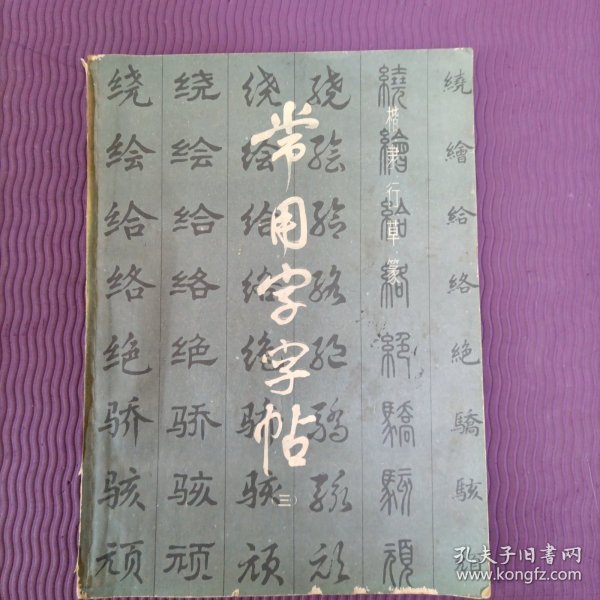 常用字字帖
(三)
楷隶行草篆
绕绘给络绝骄骇顽
绕绘给络绝骄骇顽
绕绘给络绝骄骇顽
绕绘给络绝骄骇顽
繞繪給絡絕驕駭頑
繞繪給絡絕驕駭
孔夫子旧书网
www.kongfz.com